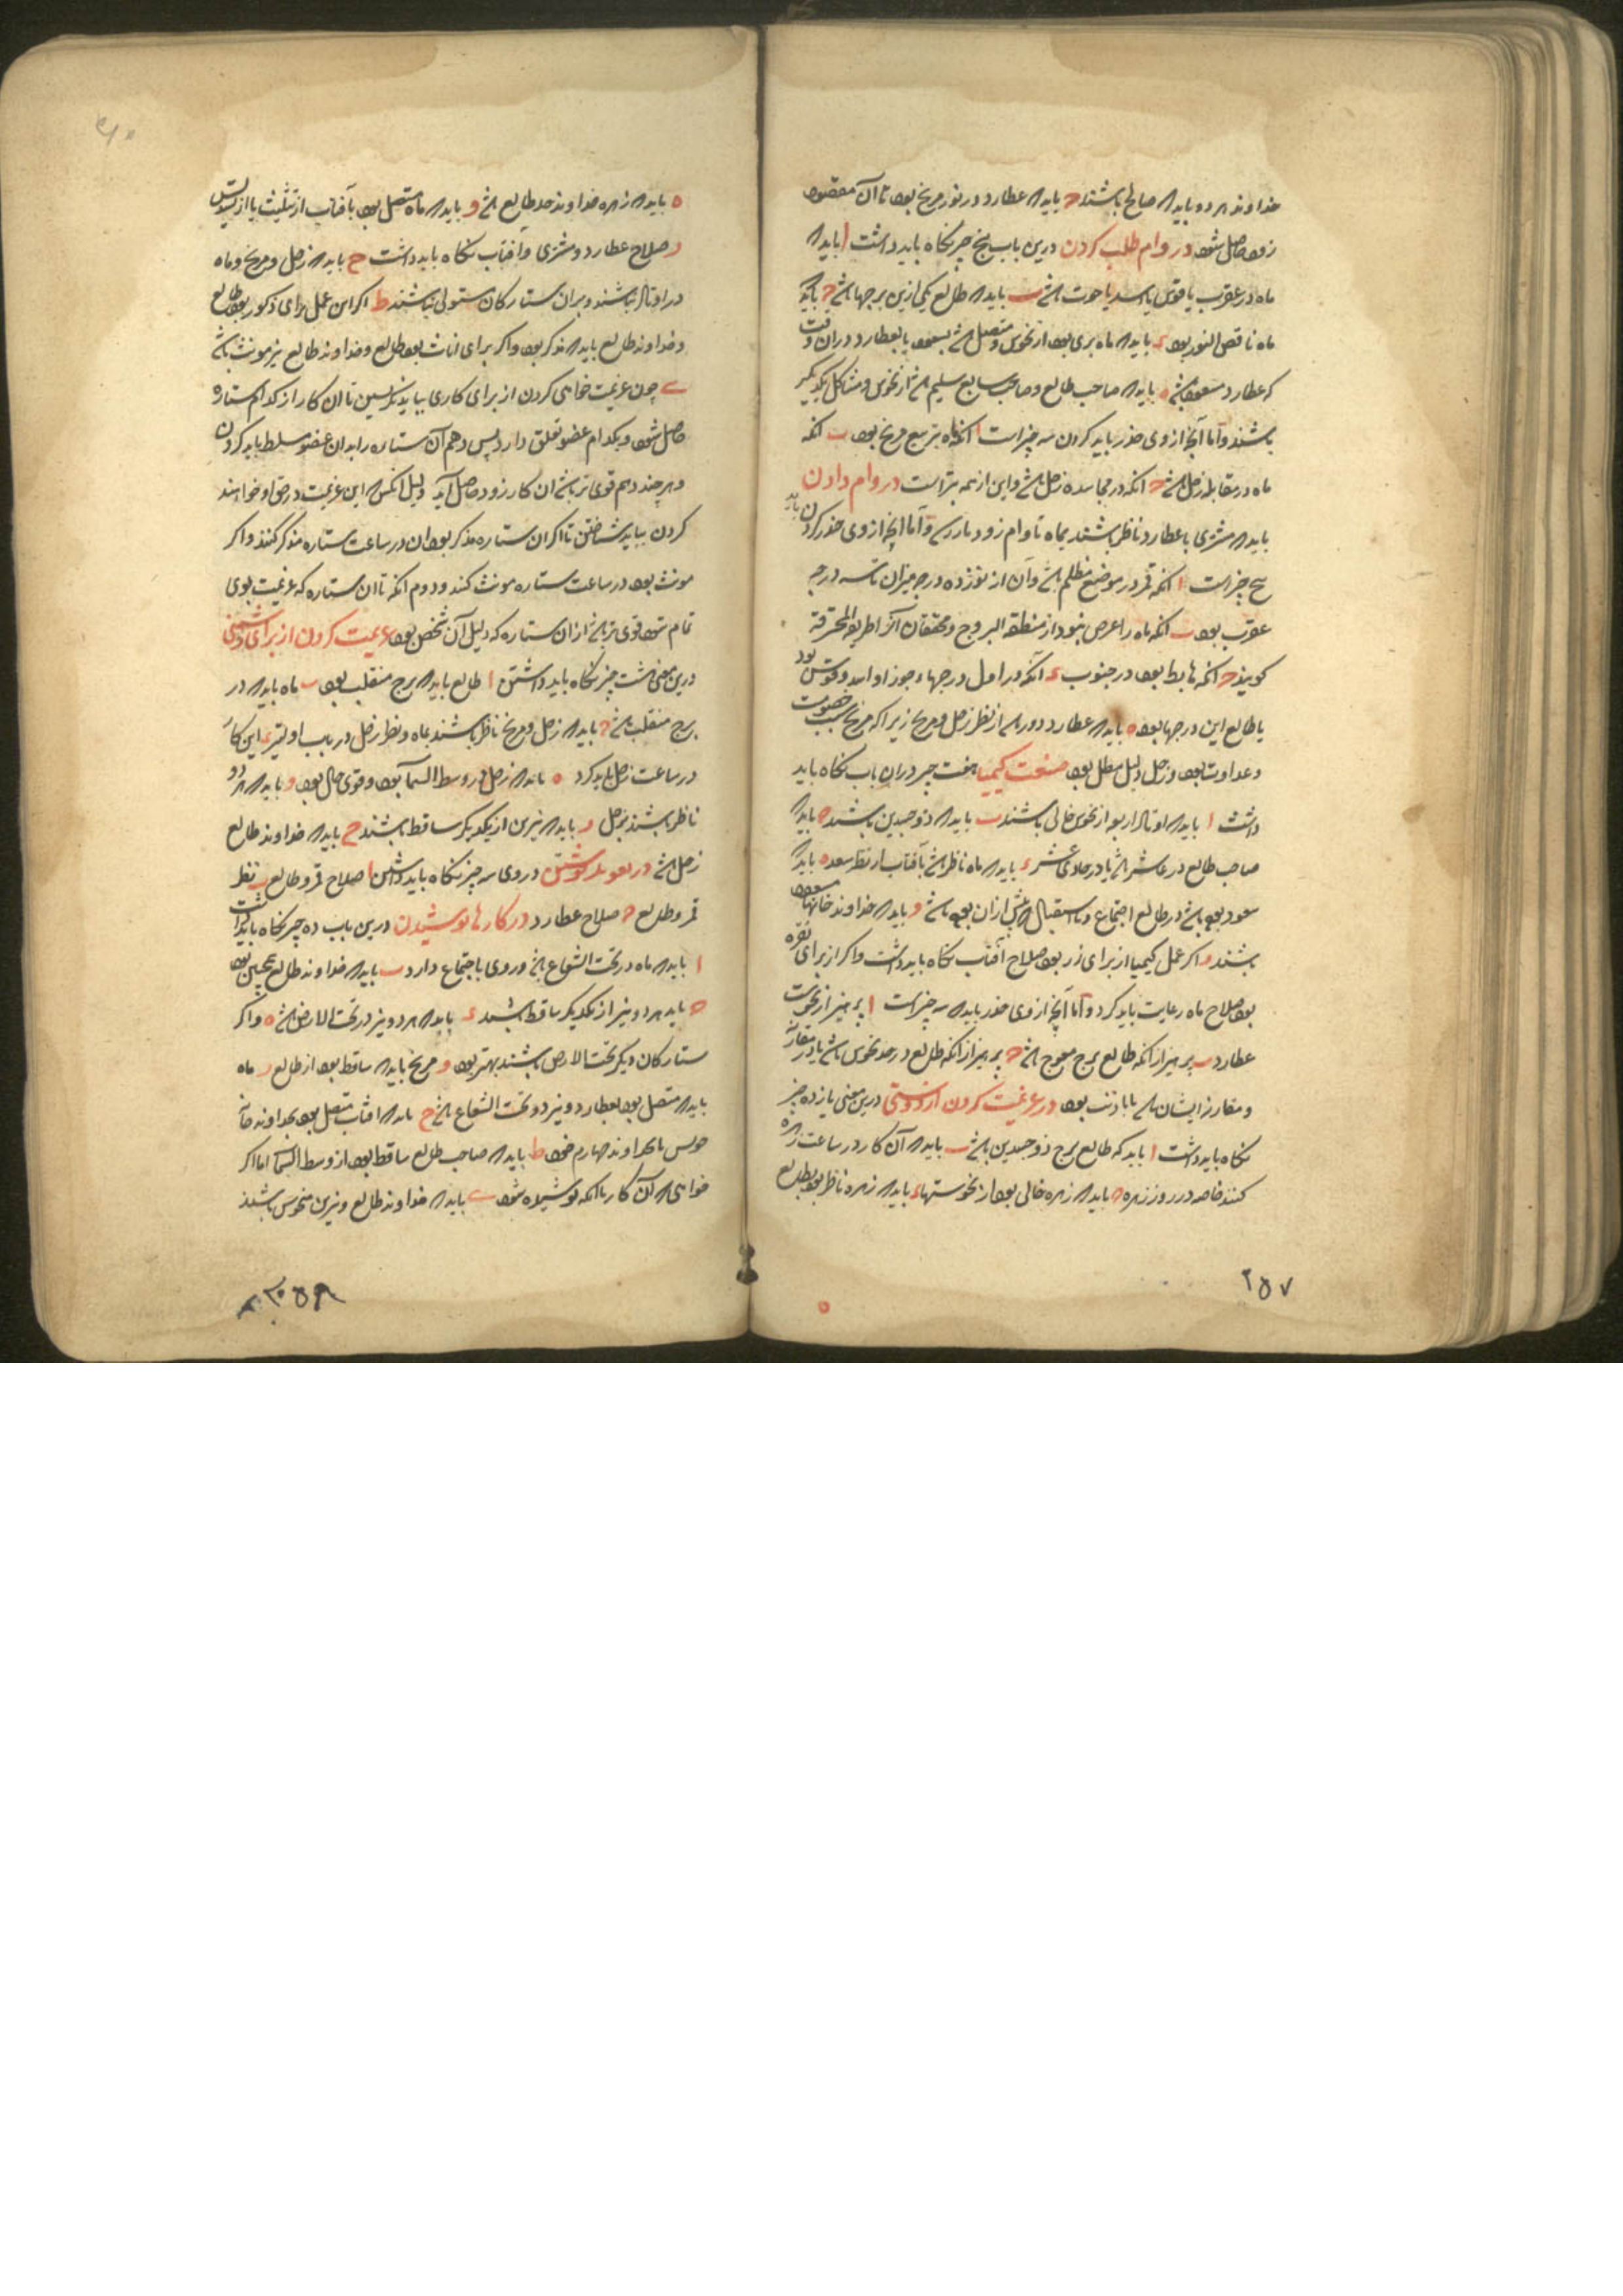 خداوند هر دو باید که صالح باشند ح باید که عطارد در نور مریخ بود تا آن مقصود
زود حاصل شود در وام طلب کردن درین باب پنج چیز نکاه باید داشت ا باید که
ماه در عقرب یا قوس یا اسد یا حوت باشد ب باید که طالع یکی ازین برجها باشد ح باید که
ماه ناقص النور بود د باید که ماه بری بود از نحوس و متصل باشد بسعود یا بعطارد دران وقت
که عطارد مسعود باشد ه باید که صاحب طالع و صاحب سابع سلیم باشد از نحوس و مشاکل یکدیگر
باشند و اما آنچ از وی حذر باید کردن سه چیز است ا انکه ماه بتربیع مریخ بود ب انکه
ماه در مقابله زحل باشد ح انکه در مجاسده زحل باشد و این از همه بتر است در وام دادن
باید که مشتری با عطارد ناظر باشند بماه تا وام زود باز رسد و اما آنچ از وی حذر کردن باید
پنج چیز است ا انکه قمر در موضع مظلم باشد و آن از نوزده درجه میزان تا سه درجه
عقرب بود ب انکه ماه را عرض نبود از منطقة البروج و محققان آنرا طریقه المحرقة
کویند ح انکه هابط بود در جنوب د آنکه در اول درجهاء جوزا و اسد و قوس بود
یا طالع این درجها بود ه باید که عطارد دور باشد از نظر زحل و مریخ زیرا که مریخ سبب خصومت
و عداوت بود و زحل دلیل مطل بود صنعت کیمیا هفت چیز دران باب نکاه باید
داشت ا باید که اوتاد اربعه از نحوس خالی باشند ب باید که ذو جسدین باشند ح باید که
صاحب طالع در عاشر باشد یا در حادی عشر د باید که ماه ناظر باشد بآفتاب از نظر سعد ه باید که
سعود بوده باشد در طالع اجتماع و یا استقبال که پیش ازان بوده باشد و باید که خداوند خانهاء مسعود
باشند و اکر عمل کیمیا از برای زر بود صلاح آفتاب نکاه باید داشت و اکر از برای نقره
بود صلاح ماه رعایت باید کرد و اما آنچ از وی حذر باید سه چیز است ا پرهیز از نحوست
عطارد ب پرهیز از انکه طالع برج معوج باشد ح پرهیز از انکه طالع در حد نحوس باشد یا در مقارنه
و مقارن ایشان باشد یا با ذنب بود در عزیمت کردن از دوستی درین معنی یازده چیز
نکاه باید داشت ا باید که طالع برج ذو جسدین باشد ب باید که آن کار در ساعت زهره
کنند خاصه در روز زهره ح باید که زهره خالی بود از نحوستها د باید که زهره ناظر بود بطالع
۲۵۷
ه باید که زهره خداوند حد طالع باشد و باید که ماه متصل بود بآفتاب از تثلیث یا از تسدیس
ز صلاح عطارد و مشتری و آفتاب نکاه باید داشت ح باید که زحل و مریخ و ماه
در اوتاد نباشند و بران ستارکان مستولی نباشند ط اکر این عمل برای ذکور بود طالع
و خداوند طالع باید که مذکر بود و اکر برای اناث بود طالع و خداوند طالع نیز مونث باشد
ی چون عزیمت خواهی کردن از برای کاری بباید نکریستن تا ان کار از کدام ستاره
حاصل شود و بکدام عضو تعلق دارد پس وهم آن ستاره را بدان عضو مسلط باید کردن
و هر چند وهم قوی تر باشد ان کار زود حاصل آید دلیل انکس که این عزیمت در حق او خواهند
کردن بباید شناختن تا اکر ان ستاره مذکر بود ان در ساعت ستاره مذکر کنند و اکر
مونث بود در ساعت ستاره مونث کند و دوم انکه تا ان ستاره که عزیمت بوی
تمام شود قوی تر باشد ازان ستاره که دلیل آن شخص بود عزیمت کردن از برای دشمنی
درین معنی هشت چیز نکاه باید داشتن ا طالع باید که برج منقلب بود ب ماه باید که در
برج منقلب باشد ح باید که زحل و مریخ ناظر باشند بماه و نظر زحل درین باب اولیتر د این کار
در ساعت زحل باید کرد ه باید که زحل در وسط السما بود و قوی حال بود و باید که هر دو
ناظر باشند بزحل ز باید که نیرین از یکدیکر ساقط باشند ح باید که خداوند طالع
زحل باشد در تعویذ نوشتن در وی سه چیز نکاه باید داشتن ا صلاح قمر و طالع ب نظر
قمر و طالع ح صلاح عطارد در کارها پوشیدن درین باب ده چیز نکاه باید داشت
ا باید که ماه در تحت الشعاع باشد و روی باجتماع دارد ب باید که خداوند طالع همچنین بود
ح باید هر دو نیز از یکدیکر ساقط باشند د باید که هر دو نیز در تحت الارض باشد ه و اکر
ستارکان دیکر تحت الارض باشند بهتر بود و مریخ باید که ساقط بود از طالع ز ماه
باید که متصل بود بعطارد و نیز در تحت الشعاع باشد ح باید که افتاب متصل بود بخداوند خانه
خویش یا بخداوند چهارم خود ط باید که صاحب طالع ساقط بود از وسط السما اما اکر
خواهی که آن کار باانکه پوشیده شود ی باید که خداوند طالع و نیرین منحوس باشند